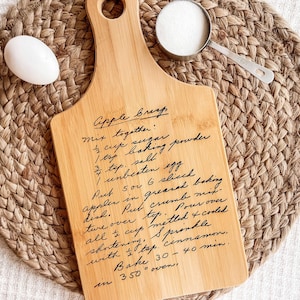 Apple Crisp
Mix together:
½ cup sugar
1 tsp baking powder
¾ tsp salt
1 unbeaten egg
Put 5 or 6 sliced
apples in greased baking
dish. Put crumb mix-
ture over top. Pour over
all ⅓ cup melted & cooled
shortening. Sprinkle
with ½ tsp cinnamon.
Bake 30-40 min
in 350° oven.